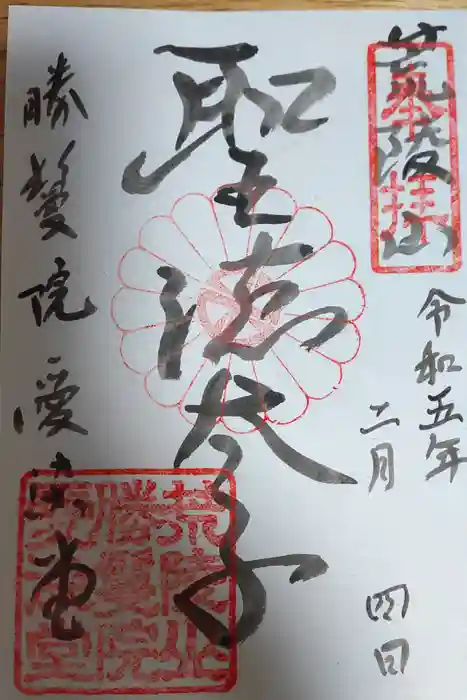 荒陵山
奉拝
令和五年
二月 四日
聖徳太子
勝鬘院 愛染堂
荒陵山
勝鬘院
愛染堂